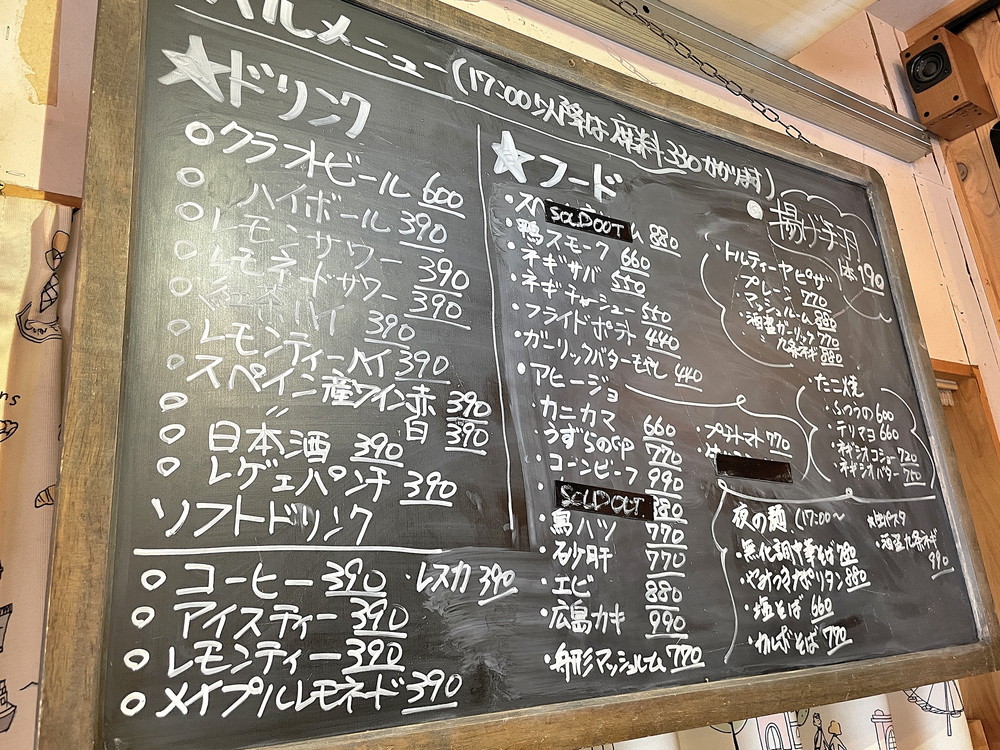 バルメニュー(17:00以降は席料330かかります)
★ドリンク
クラフトビール 600
ハイボール 390
レモンサワー 390
レモネードサワー 390
ハイ 390
レモンティーハイ 390
スペイン産ワイン赤 390
白 390
日本酒 390
レゲェパンチ 390
ソフトドリンク
コーヒー 390
・レスカ 390
アイスティー 390
レモンティー 390
メイプルレモネード 390
★フード
SOLDOUT 880
・鴨スモーク 660
・ネギサバ 550
・ネギチャーシュー 550
・フライドポテト 440
・ガーリックバターもやし 440
・アヒージョ
・カニカマ 660
・うずらの 770
・コーンビーフ 990
SOLDOUT 880
・鳥ハツ 770
・砂肝 770
・エビ 880
・広島カキ 990
・舟形マッシュルーム 770
・プチトマト 770
揚げ餃子
1本 190
・トルティーヤピザ
・プレーン 770
・マッシュルーム 880
・酒盗ガーリック 770
・〃九条ネギ 880
・たこ焼
・ふつうの 600
・テリマヨ 660
・ネギシオコショー 720
・ネギシオバター 750
夜の麺 (17:00〜
・無化調中華そば 780
・やみつきナポリタン 880
・塩そば 660
・カルボそば 770
・酒盗九条ネギ
990